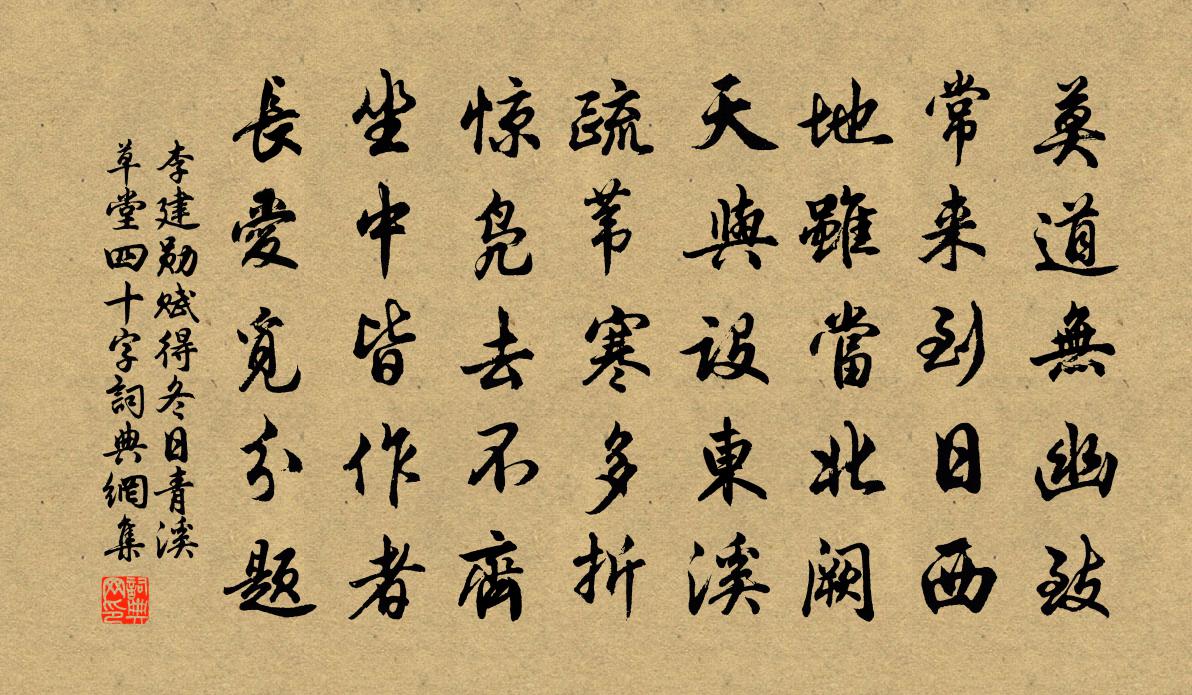 莫道無幽致
常来到日西
地雖當北阙
天與設東溪
疏苇寒多折
惊凫去不齊
坐中皆作者
長愛覓分题
李建勋赋得冬日青溪
草堂四十字詞典網集
詞典网印